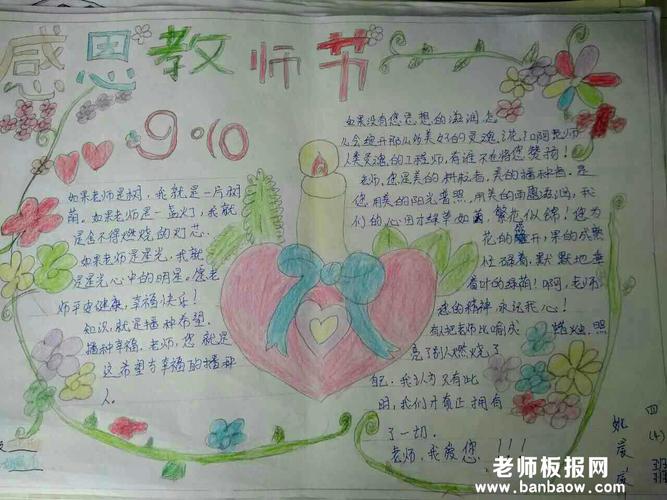 感恩教师节
9.10
如果老师是树，我就是一片树
荫。如果老师是一盏灯，我就
是舍不得燃烧的灯芯。
如果老师是星光，我就
是星光心中的明星，愿老
师平安健康，幸福快乐！
知识就是播种希望。
播种幸福。老师，您就是
这希望与幸福的播种
人。
如果没有您思想的滋润，怎
么会绽开那么多美好的灵魂之花？啊，老师
人类灵魂的工程师，有谁不在将您赞扬！
老师，您是美的耕耘者，美的播种者。是
您用美的阳光普照，用美的雨露滋润，我
们的心田才绿草如茵，繁花似锦！您为
花的盛开，果的成熟
忙碌着，默默地垂
着叶的绿荫！啊，老师
您的精神永记我心！
有人把老师比喻成蜡烛，照
亮了别人燃烧了
自己，我认为只有此
时，我们才真正拥有
了一切。
老师，我爱您！！！
四
(4)
姚
老师板报网
www.banbaow.com